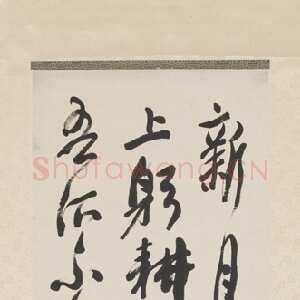 新月
上躬耕
吾所
ShufaWang.CN